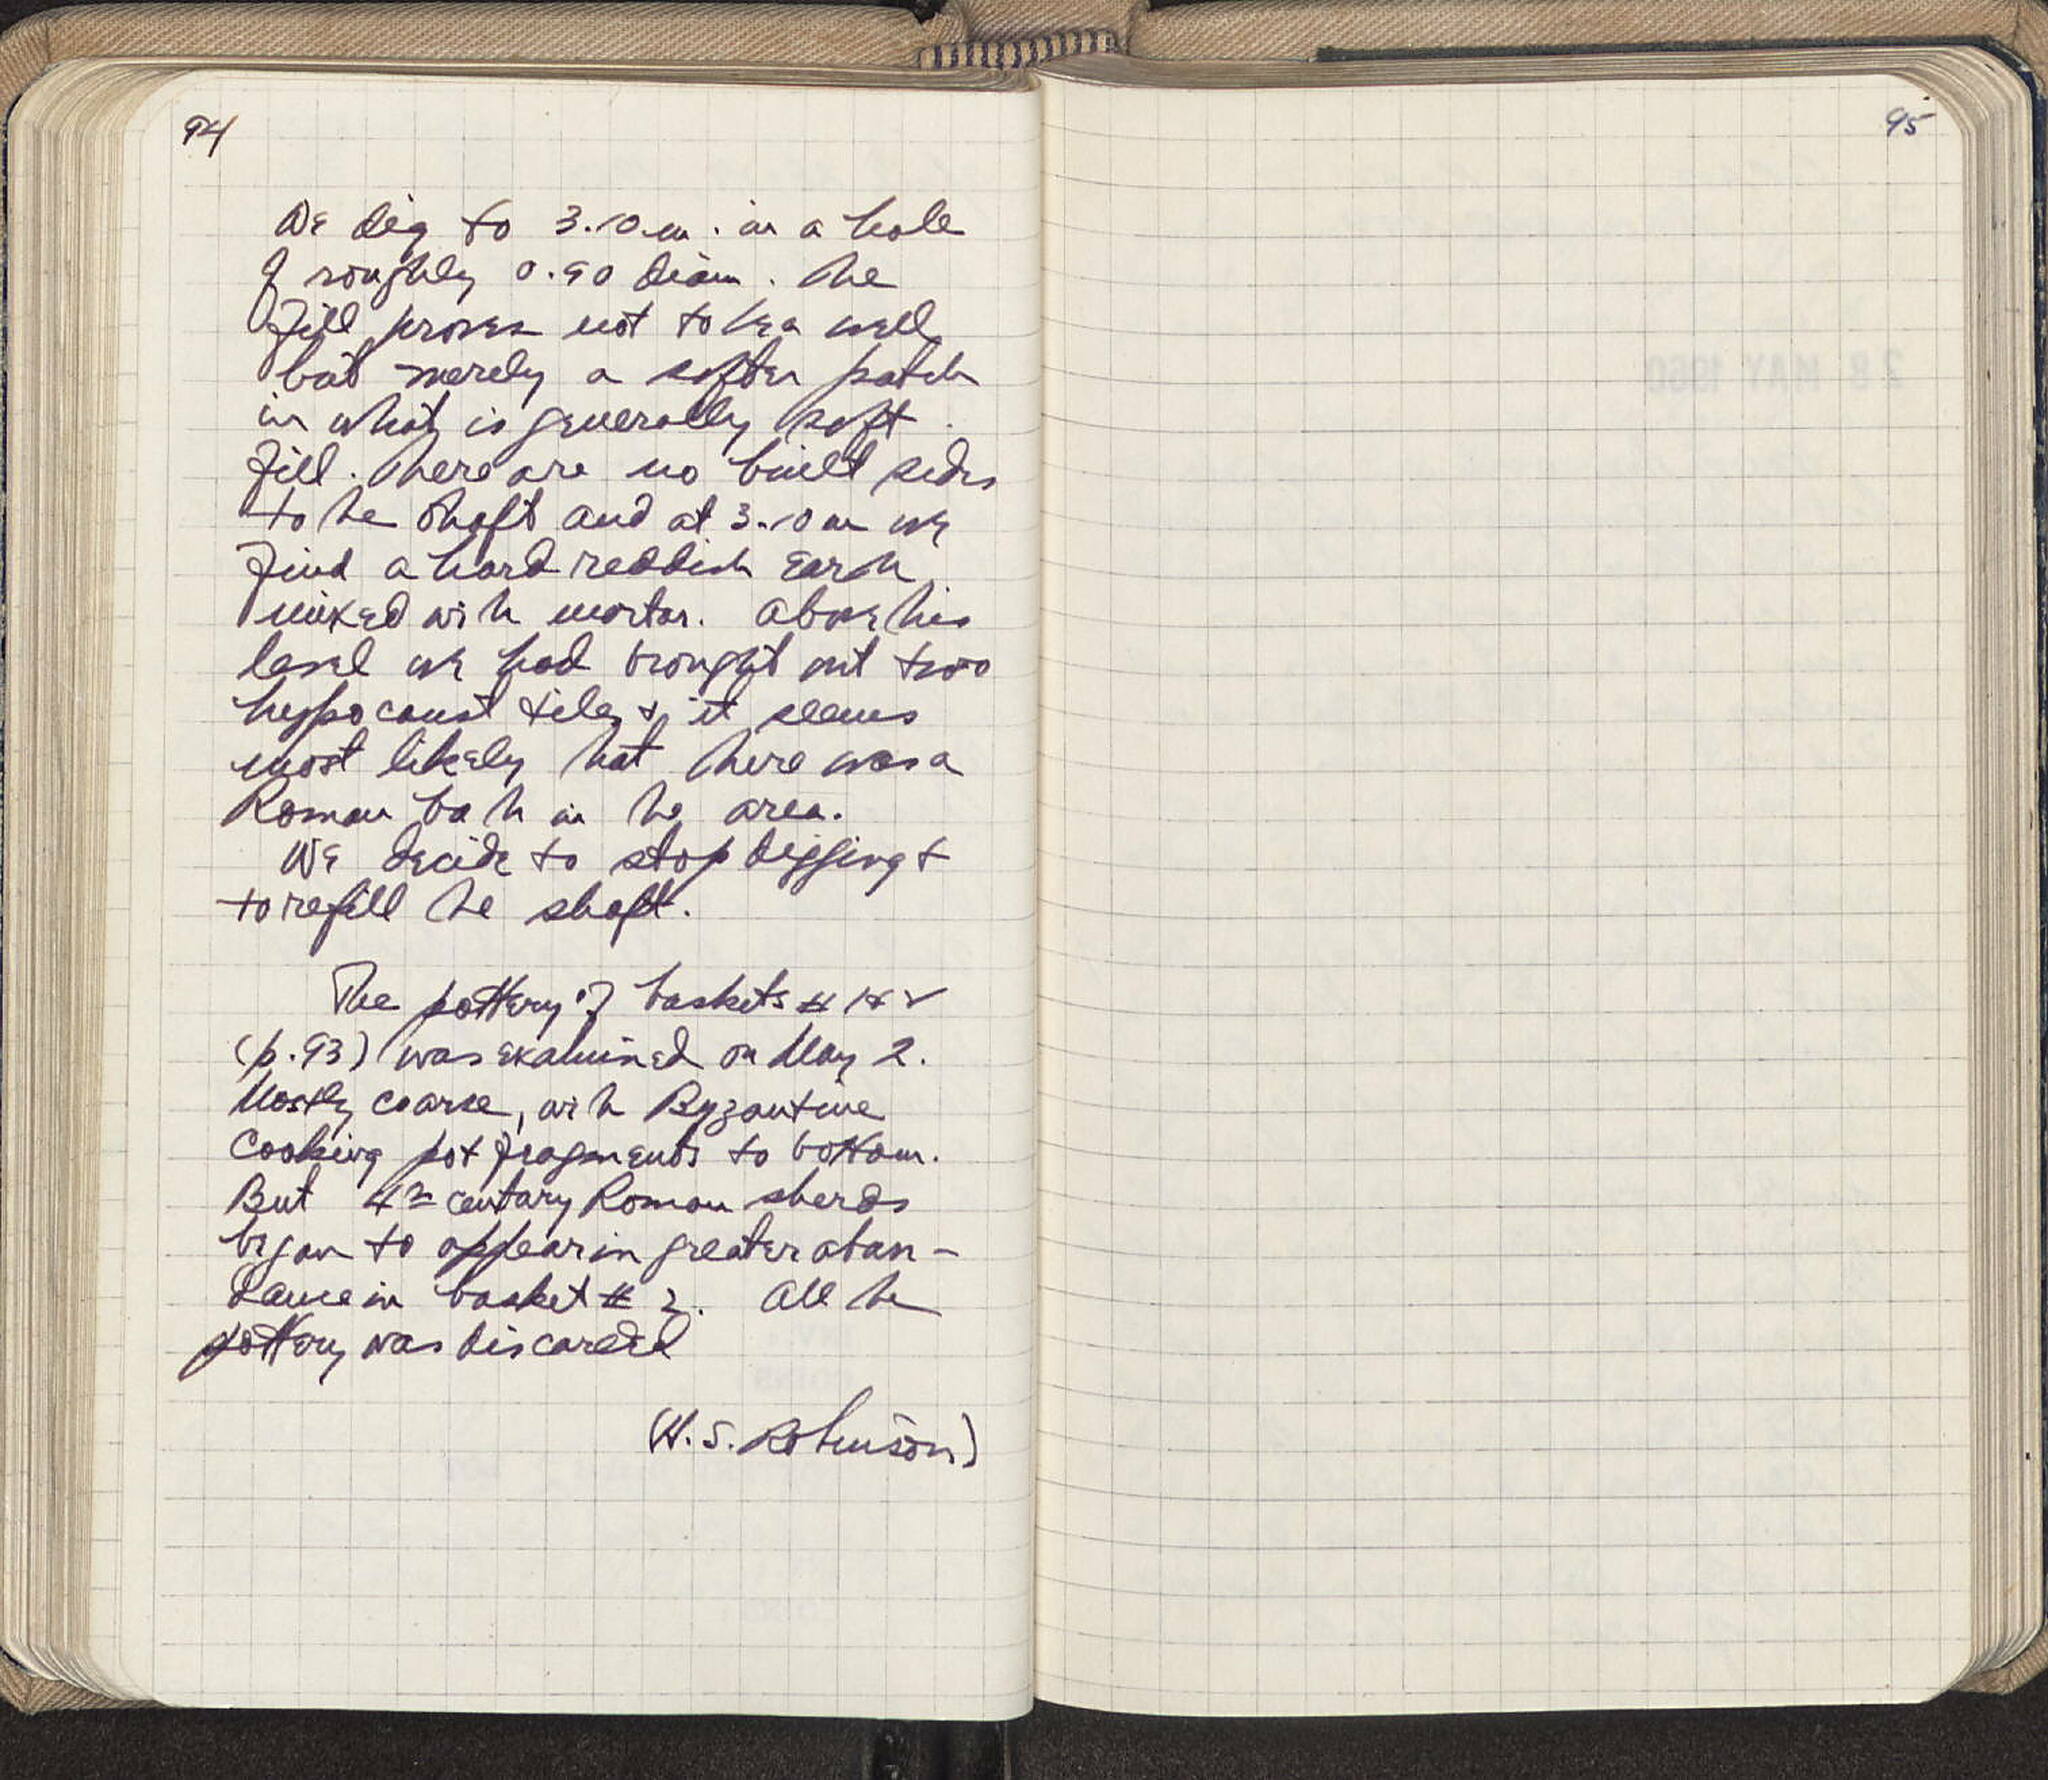 94
We dig to 3.10 m. in a hole
of roughly 0.90 diam. The
fill proves not to be a well
but merely a softer patch
in what is generally soft
fill. There are no built sides
to the shaft and at 3.10 m we
find a hard reddish earth
mixed with mortar. Above this
level we had brought out two
hypocaust tiles & it seems
most likely that there was a
Roman bath in the area.
We decide to stop digging &
to refill the shaft.
The pottery of baskets #
(p. 93) was examined on May 2.
Mostly coarse, with Byzantine
cooking pot fragments to bottom.
But 4th century Roman sherds
began to appear in greater abun-
dance in basket # 2. All the
pottery was discarded
(H. S. Robinson)
95
28 MAY 1960